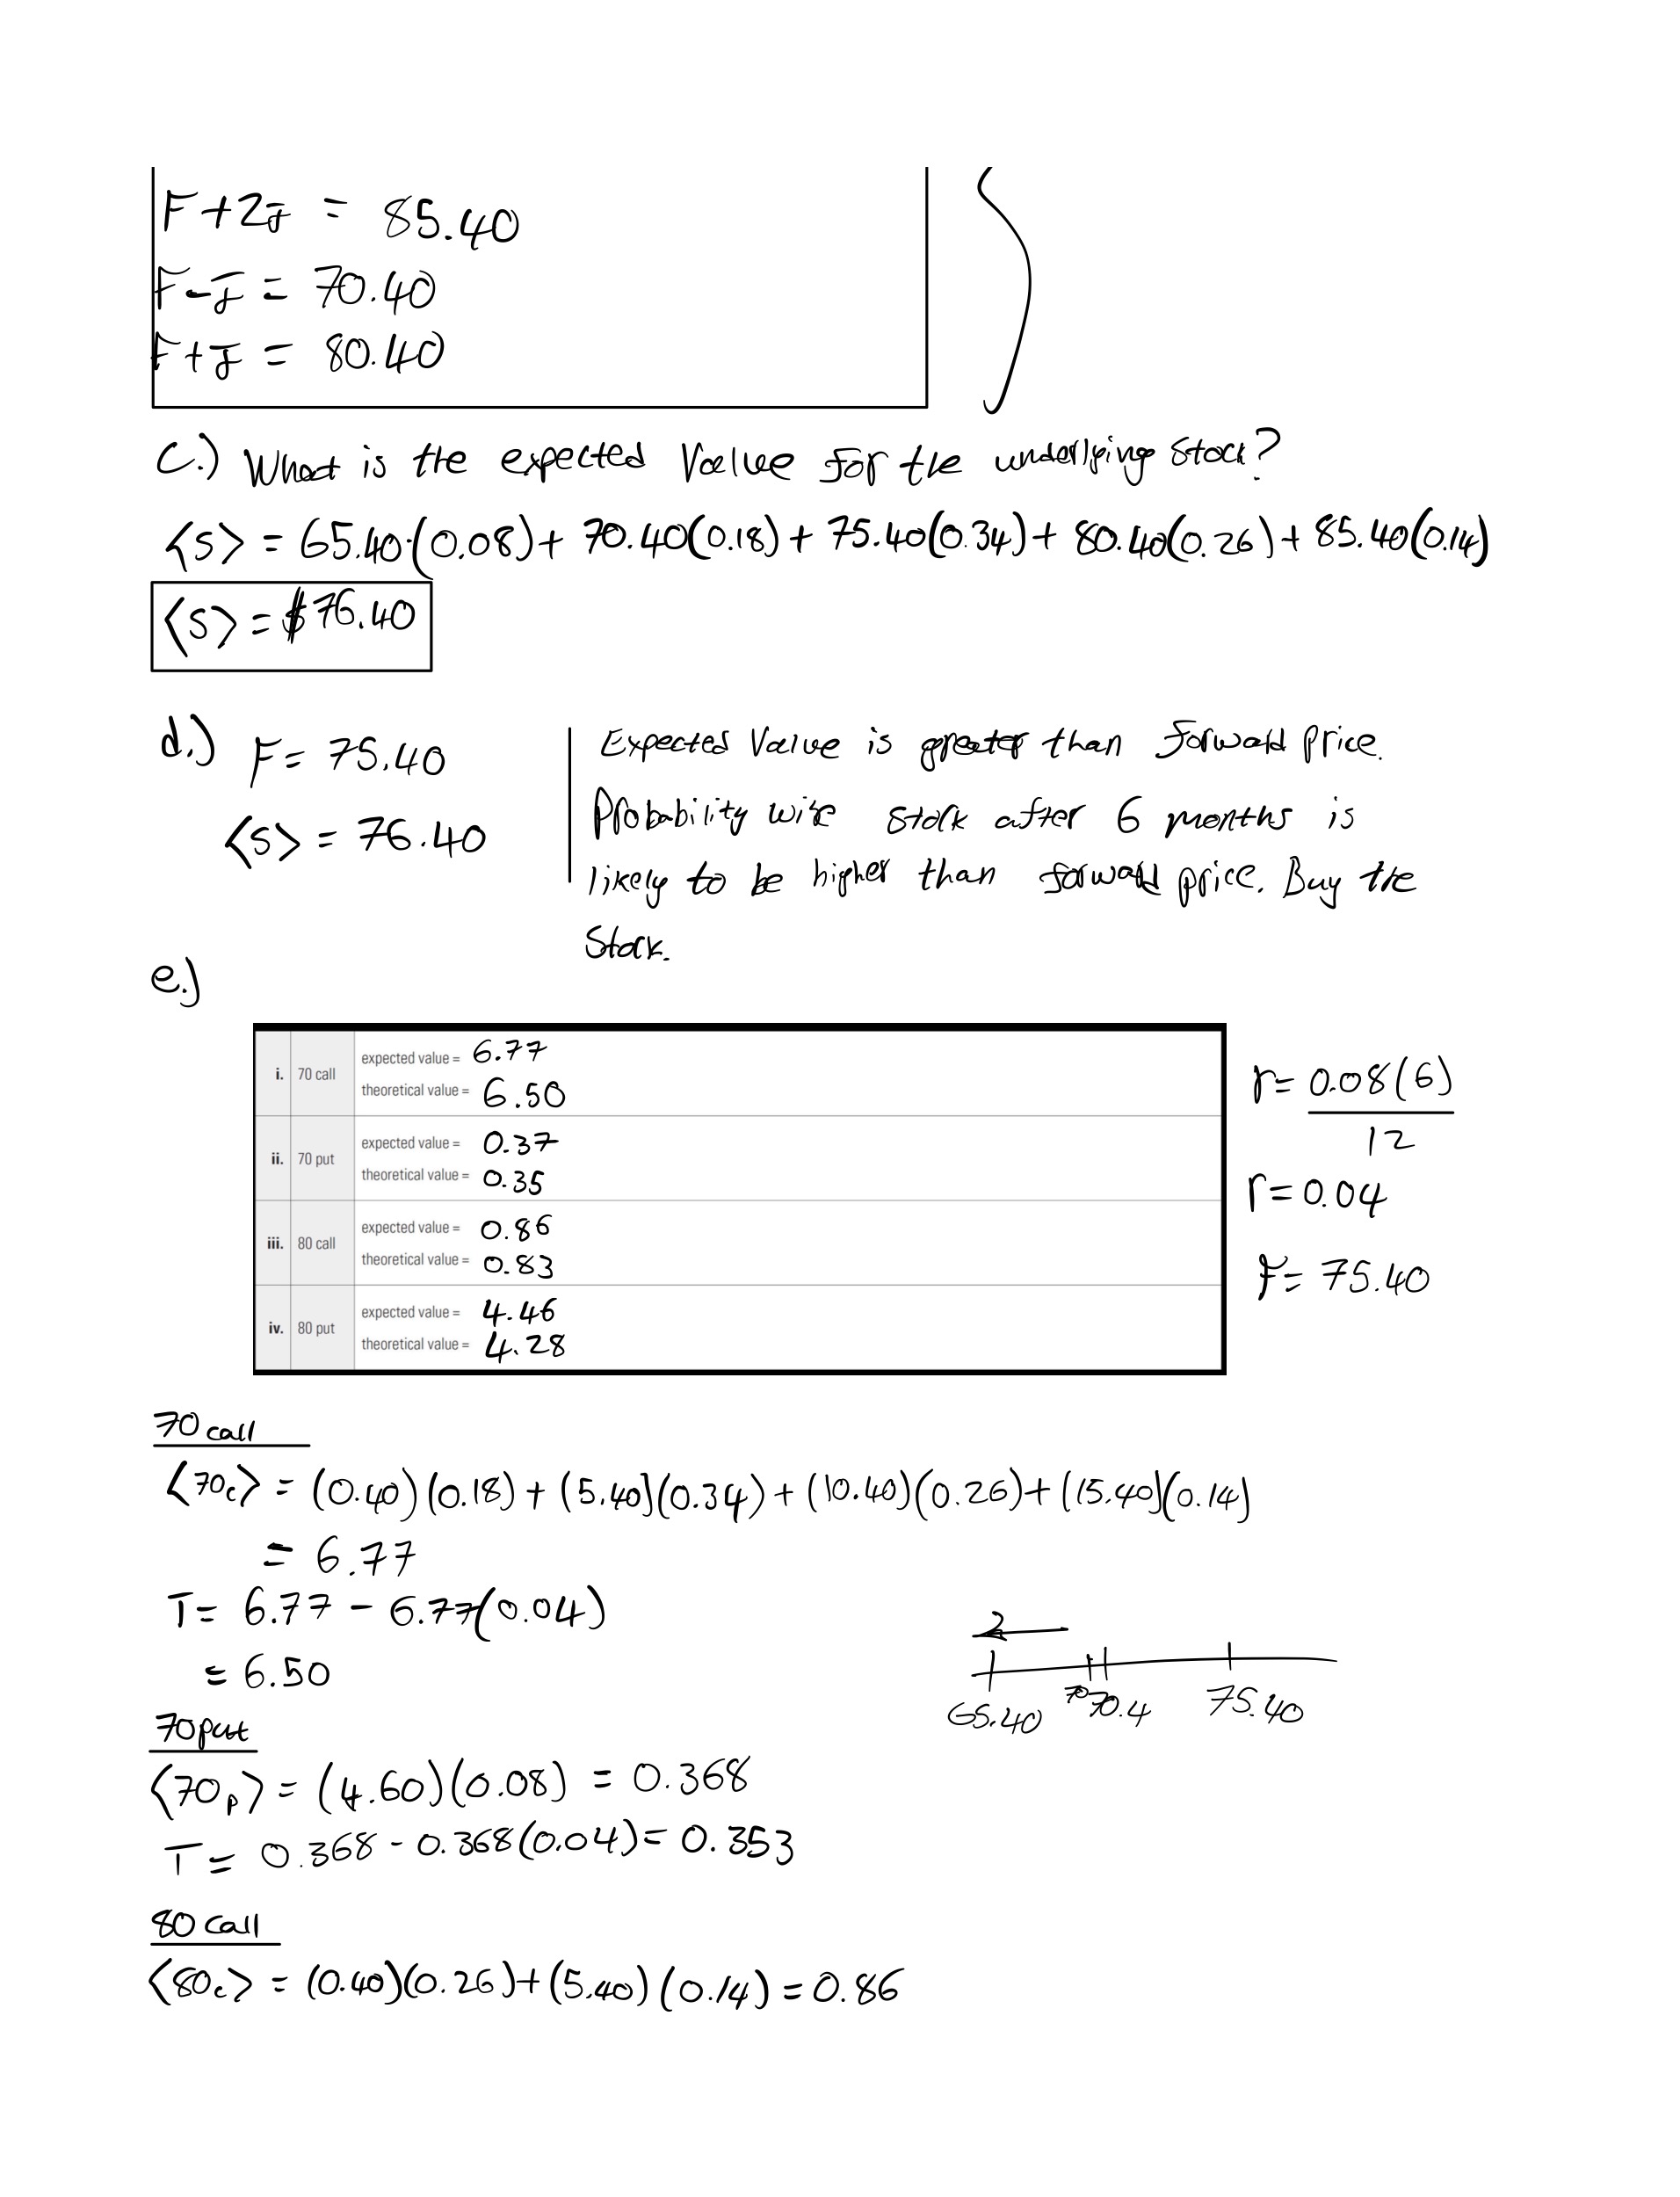 F+2f = 85.40
F-f = 70.40
F+f = 80.40
c.) What is the expected Value for the underlying stock?
⟨s⟩ = 65.40·(0.08)+ 70.40(0.18)+ 75.40(0.34)+ 80.40(0.26)+ 85.40(0.14)
⟨s⟩ = $76.40
d.) F= 75.40
⟨s⟩ = 76.40
Expected Value is greater than forward price.
Probability wise stock after 6 months is
likely to be higher than forward price. Buy the
Stock.
e.)
i. 70 call expected value = 6.77
theoretical value = 6.50
ii. 70 put expected value = 0.37
theoretical value = 0.35
iii. 80 call expected value = 0.86
theoretical value = 0.83
iv. 80 put expected value = 4.46
theoretical value = 4.28
r= 0.08(6)
12
r=0.04
F= 75.40
70 call
⟨70c⟩ = (0.40)(0.18)+(5.40)(0.34)+(10.40)(0.26)+(15.40)(0.14)
= 6.77
T= 6.77 - 6.77(0.04)
= 6.50
65.40 70 70.4 75.40
70put
⟨70p⟩ = (4.60)(0.08) = 0.368
T= 0.368 - 0.368(0.04)= 0.353
80 call
⟨80c⟩ = (0.40)(0.26)+(5.40)(0.14)=0.86